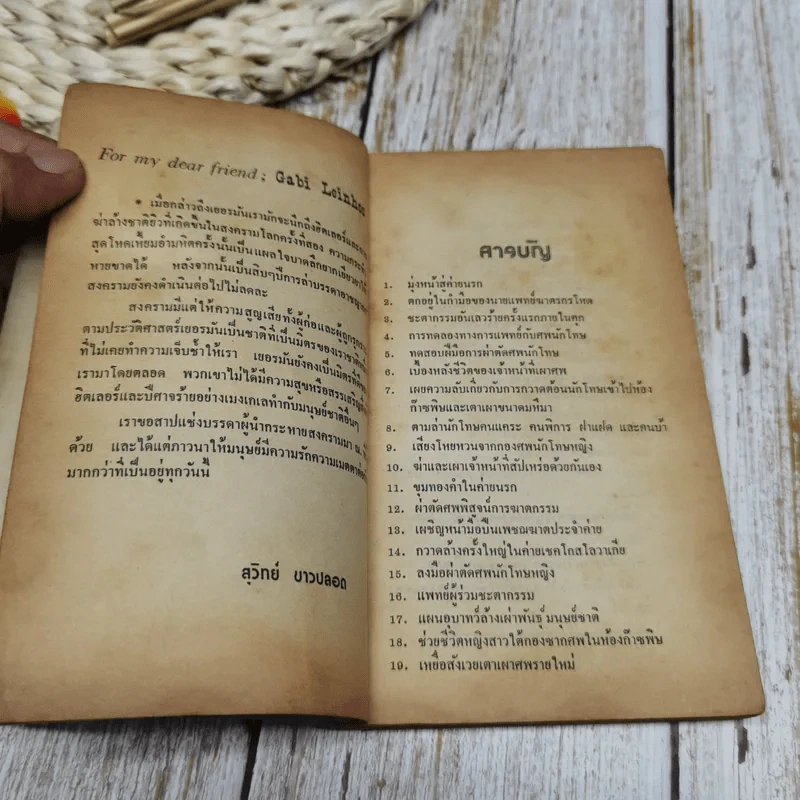 For my dear friend; Gabi Leinhos
• เมื่อกล่าวถึงเยอรมันเรามักจะนึกถึงฮิตเลอร์และการ
ฆ่าล้างชาติยิวที่เกิดขึ้นในสงครามโลกครั้งที่สอง ความกระหาย
สุดโหดเหี้ยมอำมหิตครั้งนั้นเป็นแผลใจบาดลึกยากเยียวยาให้
หายขาดได้ หลังจากนั้นเป็นสิบๆปีการล่าบรรดาอาชญากร
สงครามยังคงดำเนินต่อไปไม่ลดละ
สงครามมีแต่ให้ความสูญเสียทั้งผู้ก่อและผู้ถูกรุกราน
ตามประวัติศาสตร์เยอรมันเป็นชาติที่เป็นมิตรของเราชาติหนึ่ง
ที่ไม่เคยทำความเจ็บช้ำให้เรา เยอรมันยังคงเป็นมิตรที่ดีของ
เรามาโดยตลอด พวกเขาไม่ได้มีความสุขหรือสรรเสริญที่
ฮิตเลอร์และปีศาจร้ายอย่างเมงเกเลทำกับมนุษย์ชาติอื่นๆ
เราขอสาปแช่งบรรดาผู้นำกระหายสงครามมา ณ ที่นี้
ด้วย และได้แต่ภาวนาให้มนุษย์มีความรักความเมตตาต่อกัน
มากกว่าที่เป็นอยู่ทุกวันนี้
สุวิทย์ ขาวปลอด
สารบัญ
1. มุ่งหน้าสู่ค่ายนรก
2. ตกอยู่ในกำมือของนายแพทย์ฆาตกรโหด
3. ชะตากรรมอันเลวร้ายครั้งแรกภายในคุก
4. การทดลองทางการแพทย์กับศพนักโทษ
5. ทดสอบฝีมือการผ่าตัดศพนักโทษ
6. เบื้องหลังชีวิตของเจ้าหน้าที่เผาศพ
7. เผยความลับเกี่ยวกับการกวาดต้อนนักโทษเข้าไปห้อง
ก๊าซพิษและเตาเผาขนาดมหึมา
8. ตามล่านักโทษคนแคระ คนพิการ ฝาแฝด และคนบ้า
9. เสียงโหยหวนจากกองศพนักโทษหญิง
10. ฆ่าและเผาเจ้าหน้าที่สัปเหร่อด้วยกันเอง
11. ขุมทองคำในค่ายนรก
12. ผ่าตัดศพพิสูจน์การฆาตกรรม
13. เผชิญหน้ามือปืนเพชฌฆาตประจำค่าย
14. กวาดล้างครั้งใหญ่ในค่ายเชคโกสโลวาเกีย
15. ลงมือผ่าตัดศพนักโทษหญิง
16. แพทย์ผู้ร่วมชะตากรรม
17. แผนอุบาทว์ล้างเผ่าพันธุ์มนุษย์ชาติ
18. ช่วยชีวิตหญิงสาวใต้กองซากศพในห้องก๊าซพิษ
19. เหยื่อสังเวยเตาเผาศพรายใหม่